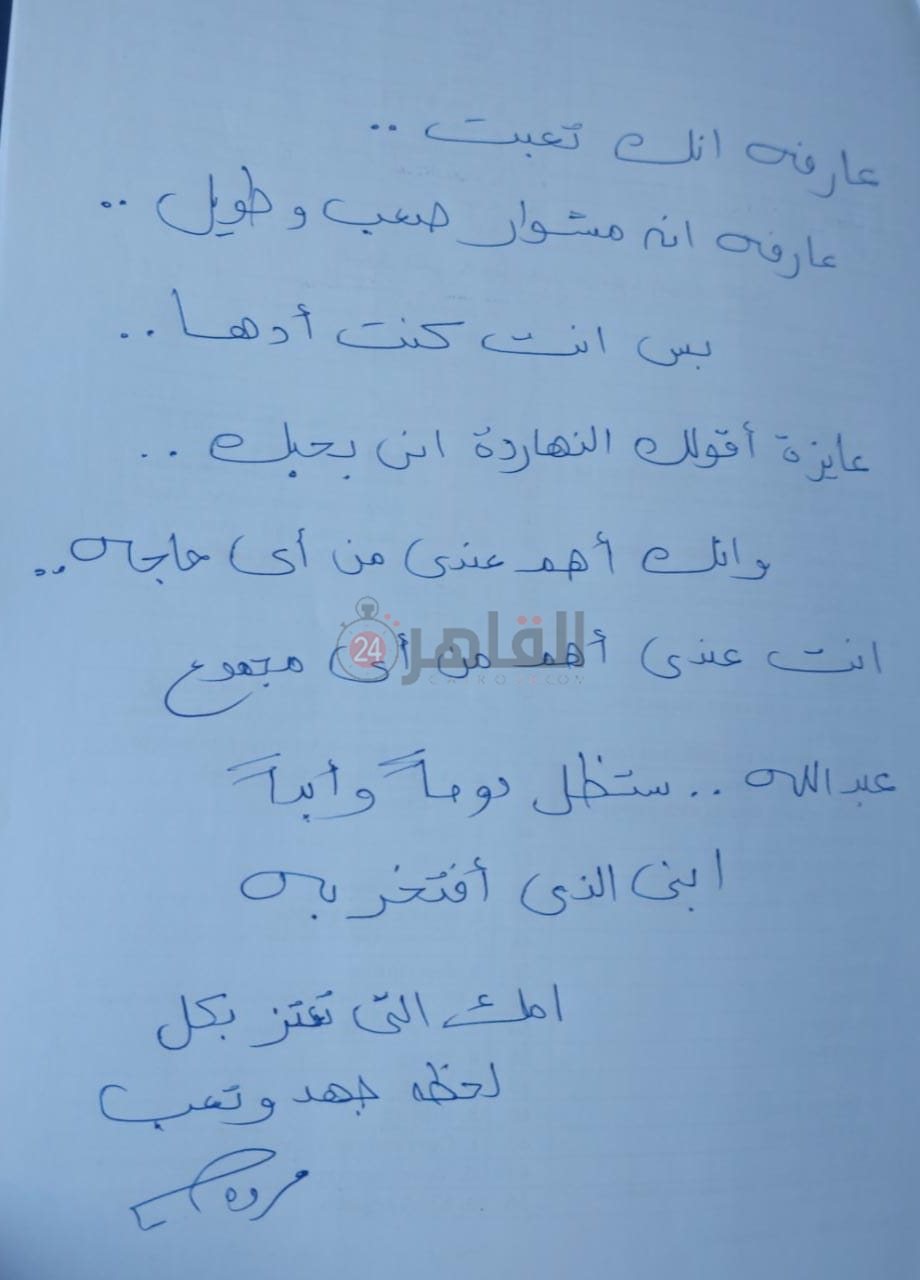 عارفه انك تعبت ..
عارفه انه مشوار صعب وطويل ..
بس انت كنت أدها ..
عايزة أقولك النهاردة انى بحبك ..
وانك أهم عندى من أى حاجه ..
القاهرة 24
CAIRO24.COM
انت عندى أهم من أى مجموع
عبدالله .. ستظل دوماً وأبداً
ابنى الذى أفتخر به
امك التى تعتز بكل
لحظه جهد وتعب
مروة